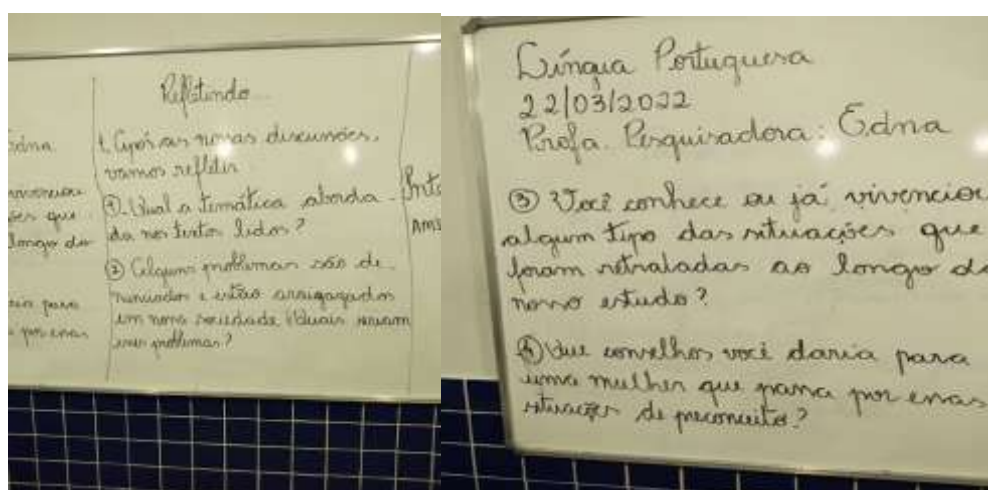 Edna
vivenciou
ões que
longo do
para
por essas
Refletindo...
1. Após as nossas discursões,
vamos refletir
① - Qual a temática aborda-
da nos textos lidos?
② Alguns problemas são de-
nunciados e estão arraigagados
em nossa sociedade. Quais seriam
esses problemas?
Língua Portuguesa
22/03/2022
Profa. Pesquisadora: Edna
③ Você conhece ou já vivenciou
algum tipo das situações que
foram retraladas ao longo do
nosso estudo?
④ Que conselhos você daria para
uma mulher que passa por essas
situações de preconceitos?